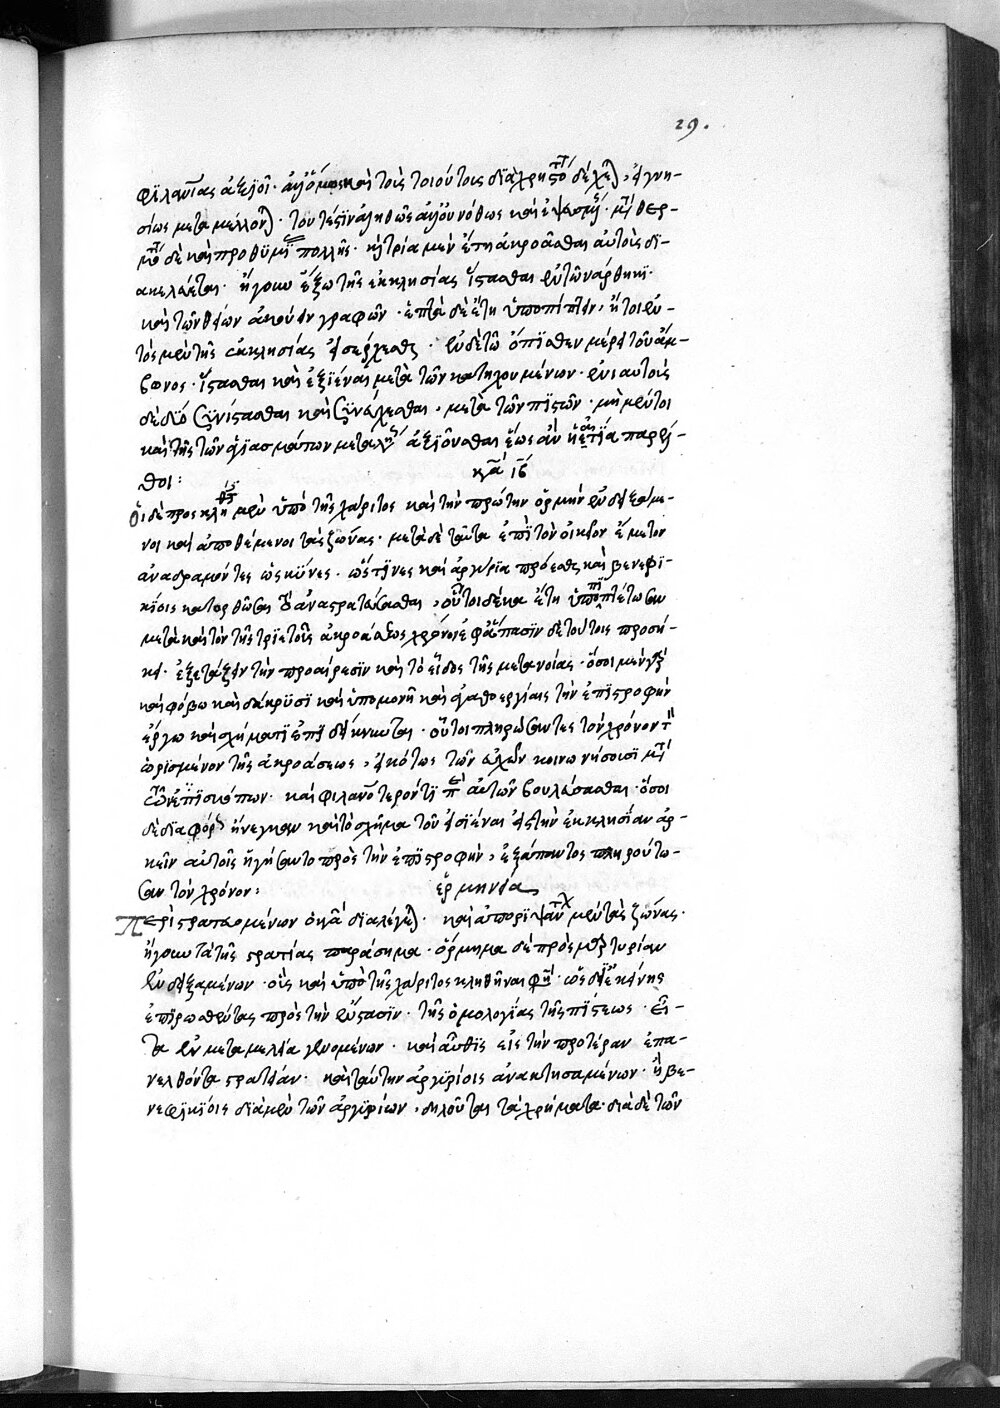 29.
φιλανίας ἀξιοῖ· καὶ τοῖς τοιούτοις δέχε), γνη-
σίως μεταμέλλον)· τουτέστιν ἀληθῶς οὐ νόθως καὶ θερ-
μ δὲ καὶ προθυμί πολλῆς· τρία μὲν ἔτη ἀκροᾶσθαι αὐτοῖς δι-
ακελεύεται· ἤγουν ἔξω τῆς ἐκκλησίας ἵστασθαι ἐν τῶ νάρθηκι·
καὶ τῶν θείων ἀκούειν γραφῶν· ἑπτὰ δὲ ἔτη ὑποπίπτειν, ἤτοι ἐν-
τὸς μὲν τῆς ἐκκλησίας εἰσέρχεσθ· ἐν δὲ τῶ ὄπισθεν μέρει τοῦ ἄμ-
βωνος· ἵστασθαι καὶ ἐξιέναι μετὰ τῶν κατηχουμένων· ἐνιαυτοῖς
δὲ δυὸ συνίστασθαι καὶ συνεύχεσθαι, μετὰ τῶν πιστῶν· μὴ μέντοι
καὶ τῆς τῶν ἁγιασμάτων μεταλ ἀξιοῦσθαι ἕως ἂν ἡ διετία παρέλ-
θοι:
κα ιβ
Οἱ δὲ προσκλη μὲν ὑπὸ τῆς χάριτος καὶ τὴν πρώτην ὁρμὴν ἐνδειξάμε-
νοι καὶ ἀποθέμενοι τὰς ζώνας· μετὰ δὲ ταῦτα ἐπὶ τὸν οἰκεῖον ἔμετον
ἀναδραμόντες ὡς κύνες· ὥς τινες καὶ ἀργύρια πρόεσθαι καὶ βενεφι-
κίοις κατορθῶσαι τὸ ἀναστρατεύσασθαι, οὗτοι δέκα ἔτη ὑποπιπτέτωσαν
μετὰ καὶ τὸν τῆς τριετοῦς ἀκροάσεως χρόνον ἐφ ἅπασιν δὲ τούτοις προσή-
κει ἐξετάζειν τὴν προαίρεσιν καὶ τὸ εἶδος τῆς μετανοίας· ὅσοι μὲν γὰρ
καὶ φόβω καὶ δάκρυσι καὶ ὑπομονῆ καὶ ἀγαθοεργίαις τὴν ἐπιστροφὴν
ἔργω καὶ σχήματι ἐπιδείκνυνται· οὗτοι πληρώσαντες τὸν χρόνον τ
ὡρισμένον τῆς ἀκροάσεως, εἰκότως τῶν εὐχῶν κοινωνήσουσι μετὰ
ἐπισκόπων· καὶ φιλανθρωπότερόν τι π αὐτῶν βουλεύσασθαι· ὅσοι
δὲ διαφόρως ἤνεγκαν καὶ τὸ σχῆμα τοῦ εἰσιέναι εἰς τὴν ἐκκλησίαν ἀρ-
κεῖν αὐτοῖς ἡγήσαντο πρὸς τὴν ἐπιστροφὴν, ἐξάπαντος πληρούτω-
σαν τὸν χρόνον:
ἑρμηνεία
Περὶ στρατευομένων ὁ κα διαλέγε)· καὶ ἀπορριψαν μὲν τὰς ζώνας·
ἤγουν τὰ τῆς στρατίας παράσημα· ὅρμημα δὲ πρὸς μαρτυρίαν
ἐνδειξαμένων· οἷς καὶ ὑπὸ τῆς χάριτος κληθῆναι φη· ὡς δὴ ἐκείνης
ἐπιρρωθέντας πρὸς τὴν ἔνστασιν· τῆς ὁμολογίας τῆς πίστεως· Εἶ-
τα ἐν μεταμελεία γενομένων· καὶ αὖθις εἰς τὴν προτέραν ἐπα-
νελθόντα στρατείαν· καὶ ταύτην ἀργυρίοις ἀνακτησαμένων· ἢ βε-
νεφικίοις διὰ μὲν τῶν ἀργυρίων, δηλοῦται τὰ χρήματα· διὰ δὲ τῶν